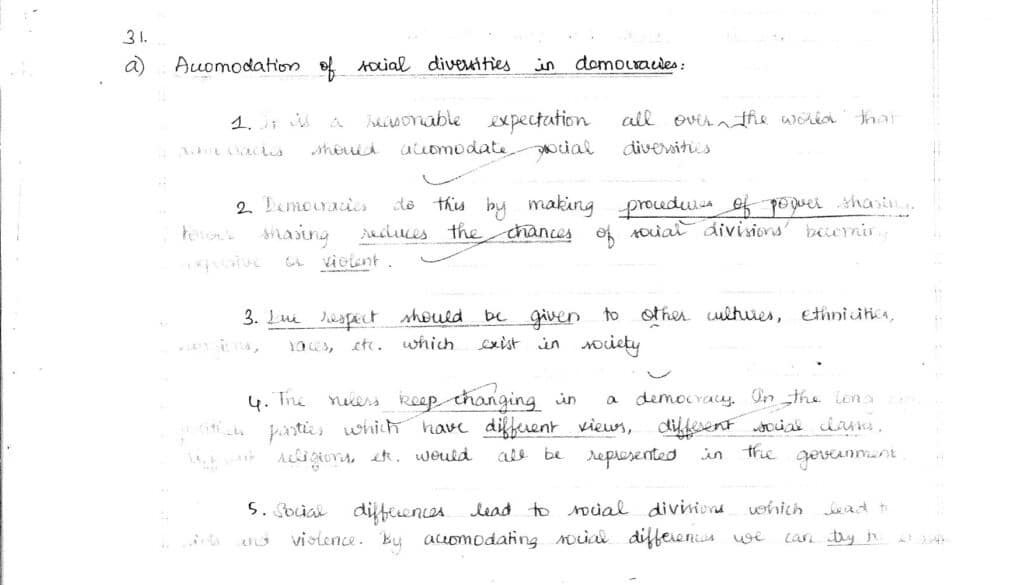 31.
a) Accomodation of social diversities in democracies:
1. It is a reasonable expectation all over the world that
democracies should accomodate social diversities
2. Democracies do this by making procedures of power sharing.
Power sharing reduces the chances of social divisions becoming
explosive or violent.
3. Due respect should be given to other cultures, ethnicities,
religions, races, etc. which exist in society
4. The rulers keep changing in a democracy. In the long
parties which have different views, different social class,
different religions, etc. would all be represented in the government
5. Social differences lead to social divisions which lead to
and violence. By accomodating social differences we can try to